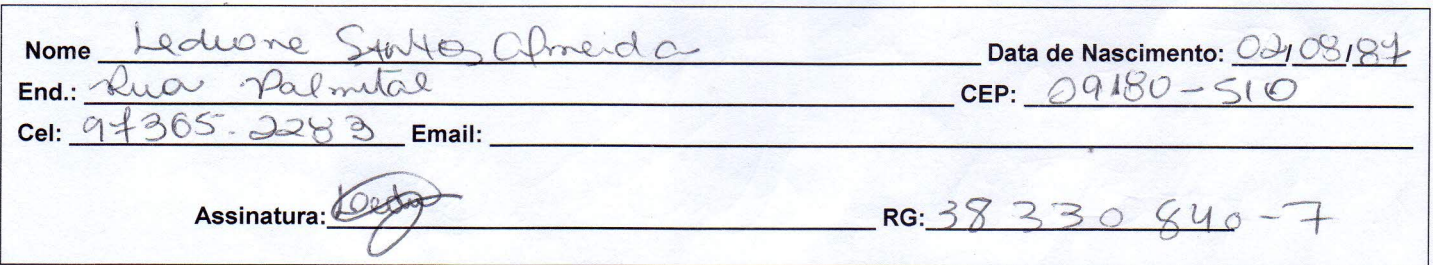 Nome Ledione Santos Almeida Data de Nascimento: 02/08/87
End.: Rua Palmital CEP: 09180-510
Cel: 97365-2283 Email:
Assinatura: RG: 38 330 840-7